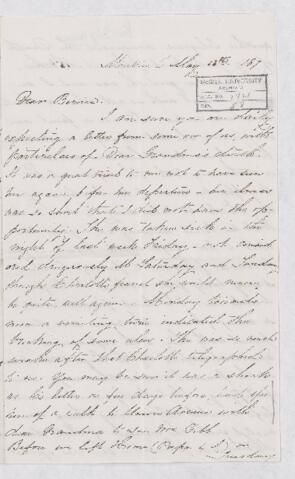 Montreal May 18th 187
McGILL UNIVERSITY
ARCHIVES
ACC. NO.
REF.
Dear Bernard
I am sure you are daily
expecting a letter from some one of us, with
particulars of Dear Grandma's death.
It was a great trial to me not to have seen
her again before her departure - her illness
was so short that I did not have the op-
portunity. She was taken sick in the
night of last week Friday - not consid
ered dangerously till Saturday and Sunday
night Charlotte feared she would never
be quite well again. Monday towards
noon a vomiting turn indicated the
breaking of some ulcer. She was so much
worse after that Charlotte telegraphed
to us. You may be sure it was a shock
as his letter a few days before made
of a walk to with
dear Grandma to see Mrs
Before we left Home (Papa & I) on
Tuesday